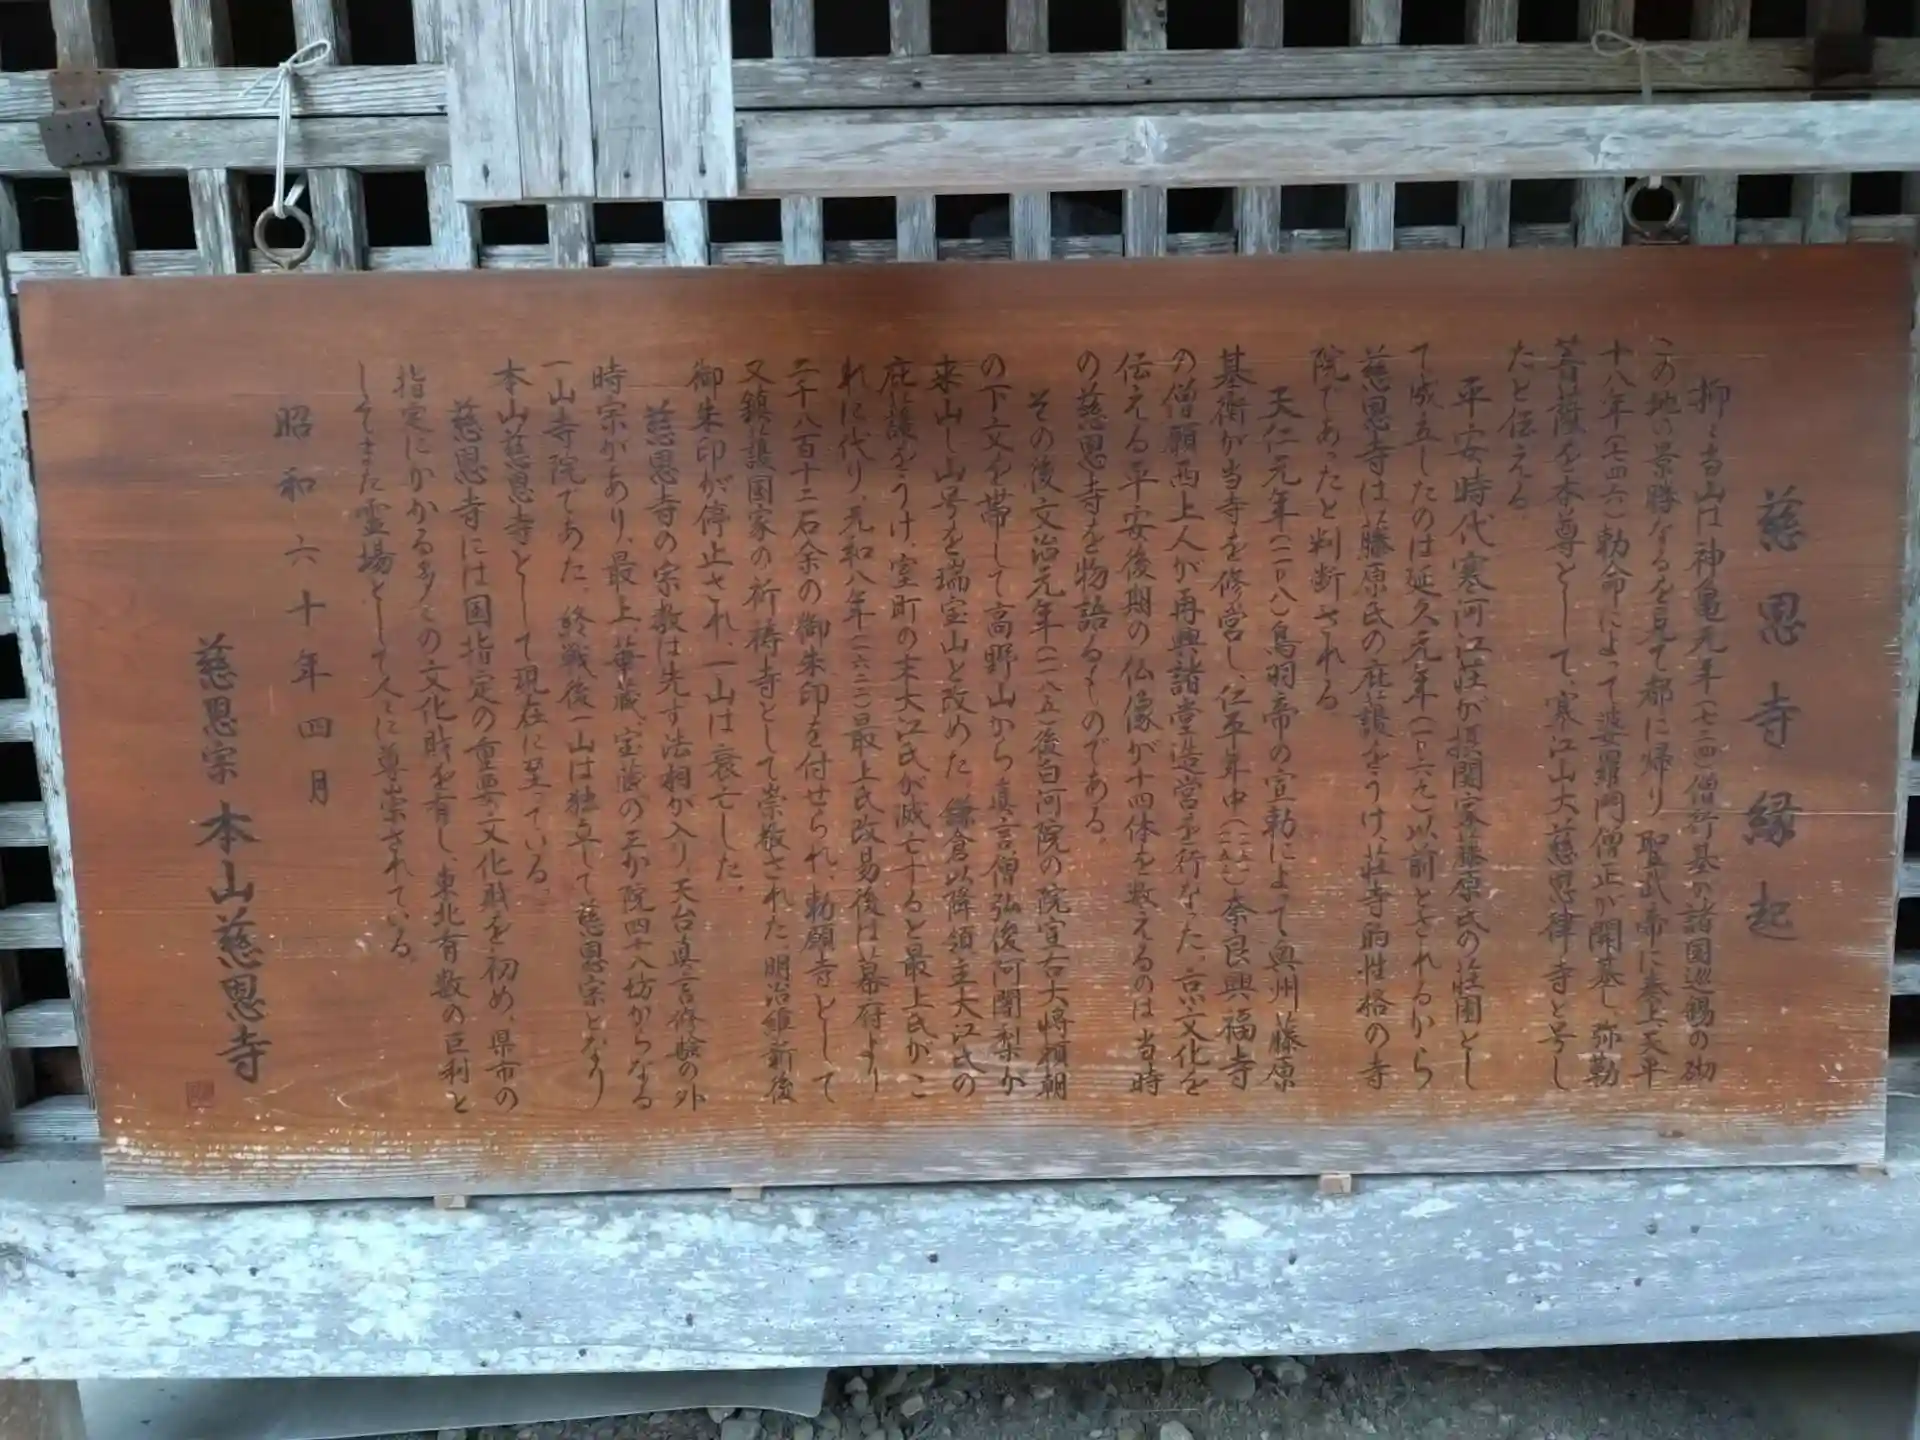 慈恩寺縁起
抑々当山は神亀元年（七二四）僧行基が諸国巡錫の砌
この地の景勝なるを見て都に帰り聖武帝に奏上、天平
十八年（七四六）勅命によって婆羅門僧正が開基し、弥勒
菩薩を本尊として、寒江山大慈恩律寺と号し
たと伝える。
平安時代寒河江荘が摂関家藤原氏の荘園とし
て成立したのは延久元年（一〇六九）以前とされるから
慈恩寺は藤原氏の庇護をうけ、荘寺的性格の寺
院であったと判断される。
天仁元年（一一〇八）鳥羽帝の宣勅によって奥州藤原
基衡が当寺を修営し、仁平年中（一一五一）奈良興福寺
の僧願西上人が再興諸堂造営を行なった。京文化を
伝える平安後期の仏像が十四体を数えるのは当時
の慈恩寺を物語るものである。
その後文治元年（一一八五）後白河院の院宣右大将頼朝
の下文を帯して高野山から真言僧弘俊阿闍梨が
来山し山号を瑞宝山と改めた。鎌倉以降領主大江氏の
庇護をうけ、室町の末大江氏が滅亡すると最上氏がこ
れに代り、元和八年（一六二二）最上氏改易後は幕府より
二千八百十二石余の御朱印を付せられ、勅願寺として
又鎮護国家の祈祷寺として崇敬された。明治維新後
御朱印が停止され、一山は衰亡した。
慈恩寺の宗教は先ず法相が入り、天台真言修験の外
時宗があり、最上、華蔵、宝蔵の三か院四十八坊からなる
一山寺院であった。終戦後一山は独立して慈恩宗となり
本山慈恩寺として現在に至っている。
慈恩寺には国指定の重要文化財を初め、県市の
指定にかかる多くの文化財を有し、東北有数の巨刹と
してまた霊場として人々に尊崇されている。
昭和六十年四月
慈恩宗 本山慈恩寺